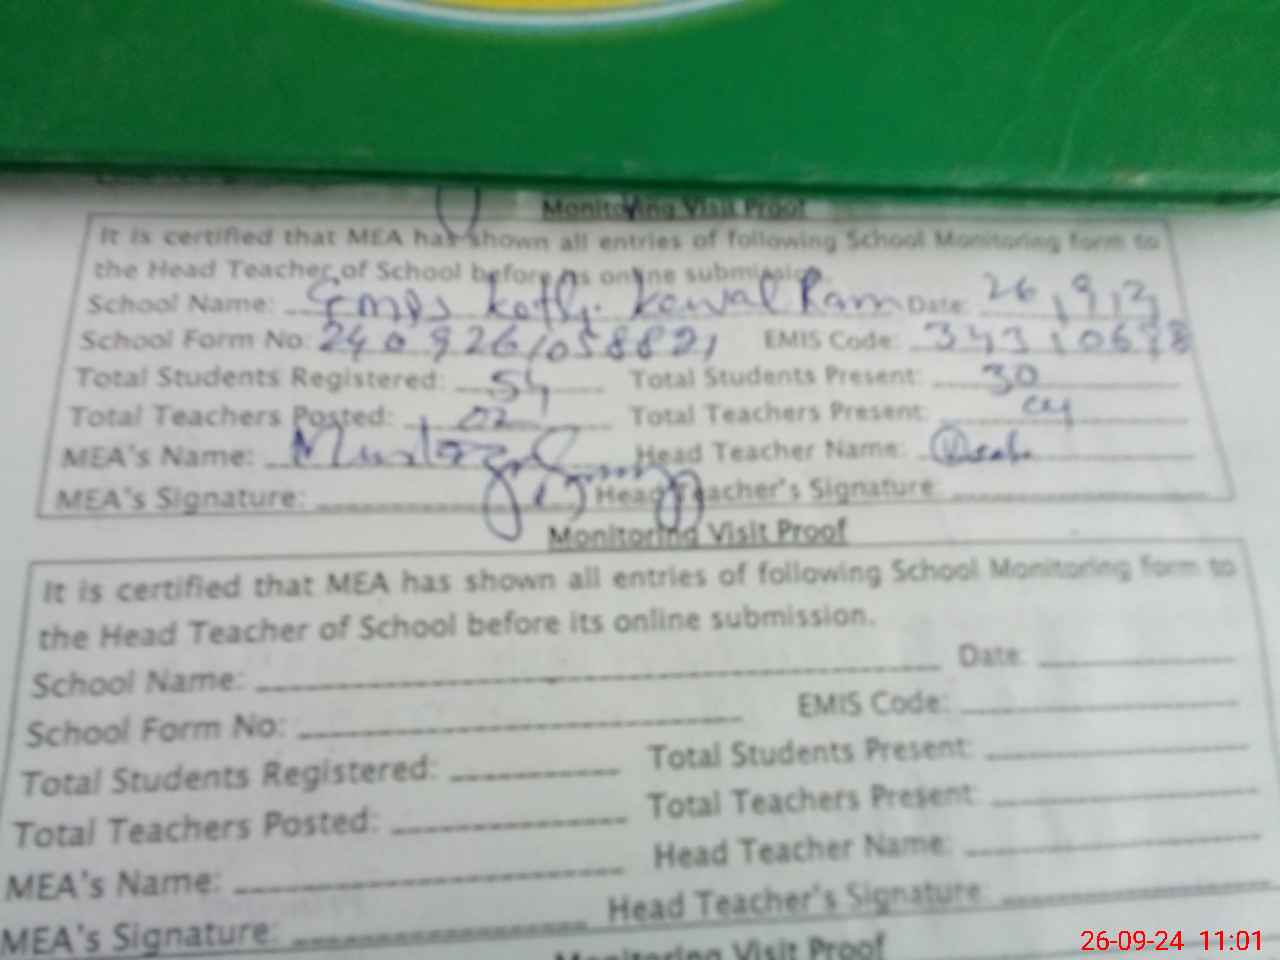 Monitoring Visit Proof
It is certified that MEA has shown all entries of following School Monitoring form to
the Head Teacher of School before its online submission.
School Name: Gmps Kotly Kawal Ram Date: 26, 9, 2
School Form No: 240926105882, EMIS Code: 34310678
Total Students Registered: 54 Total Students Present: 30
Total Teachers Posted: 02 Total Teachers Present:
MEA's Name: Head Teacher Name:
MEA's Signature: Head Teacher's Signature:
Monitoring Visit Proof
It is certified that MEA has shown all entries of following School Monitoring form to
the Head Teacher of School before its online submission.
School Name: Date:
School Form No: EMIS Code:
Total Students Registered: Total Students Present:
Total Teachers Posted: Total Teachers Present:
MEA's Name: Head Teacher Name:
MEA's Signature: Head Teacher's Signature:
Monitoring Visit Proof
26-09-24 11:01